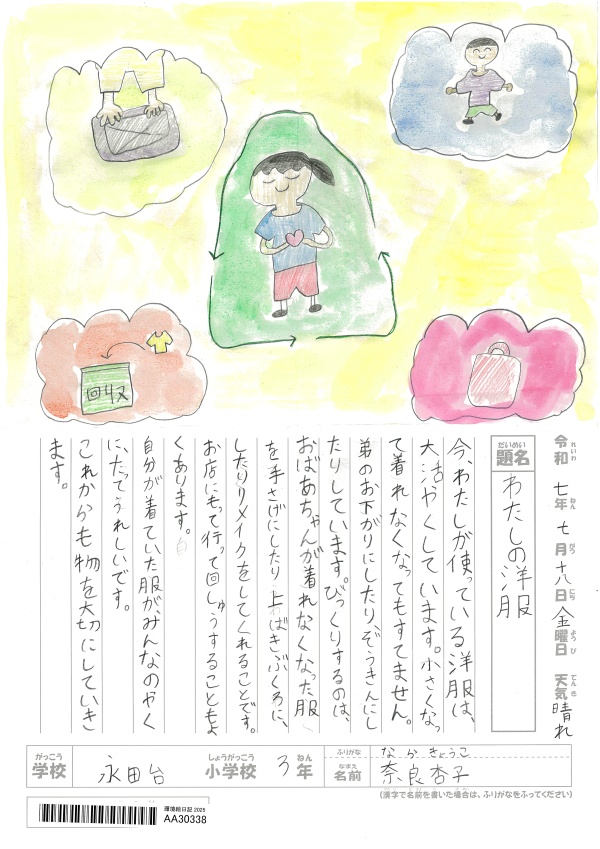 回収
令和 七年 七月 十八日 金曜日 天気 晴れ
れいわ ねん がつ にち ようび てんき
だいめい
題名 わたしの洋服
今、わたしが使っている洋服は、
大活やくしています。小さくなっ
て着れなくなってもすてません。
弟のお下がりにしたり、ぞうきんにし
たりしています。びっくりするのは、
おばあちゃんが着れなくなった服
を手さげにしたり上ばきぶくろに、
したりリメイクをしてくれることです。
お店にもって行って回しゅうすることもよ
くあります。
自分が着ていた服がみんなのやく
に、たってうれしいです。
これからも物を大切にしていき
ます。
がっこう しょうがっこう ねん
学校 永田台 小学校 3年
ふりがな なら きょうこ
なまえ
名前 奈良杏子
(漢字で名前を書いた場合は、ふりがなをふってください)
環境絵日記 2025
AA30338